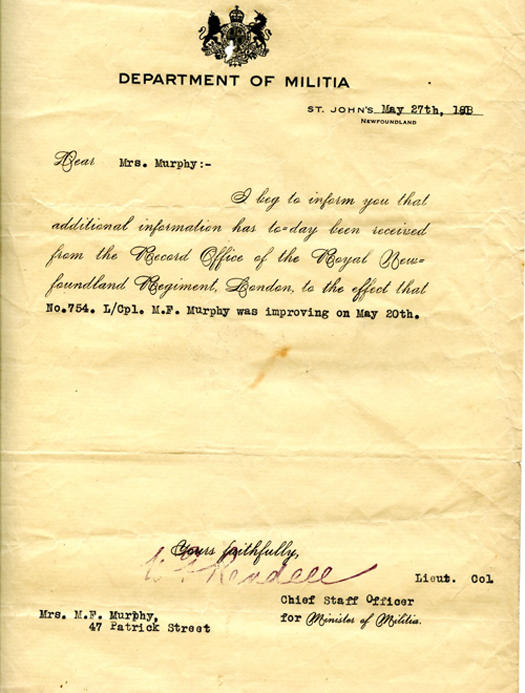 DEPARTMENT OF MILITIA
ST. JOHN'S May 27th, 
NEWFOUNDLAND
Dear Mrs. Murphy:-
I beg to inform you that
additional information has to=day been received
from the Record Office of the Royal New=
foundland Regiment, London, to the effect that
No.754. L/Cpl. M.F. Murphy was improving on May 20th.
Yours faithfully,
Rendell
Lieut. Col
Chief Staff Officer
for Minister of Militia.
Mrs. M.F. Murphy,
47 Patrick Street